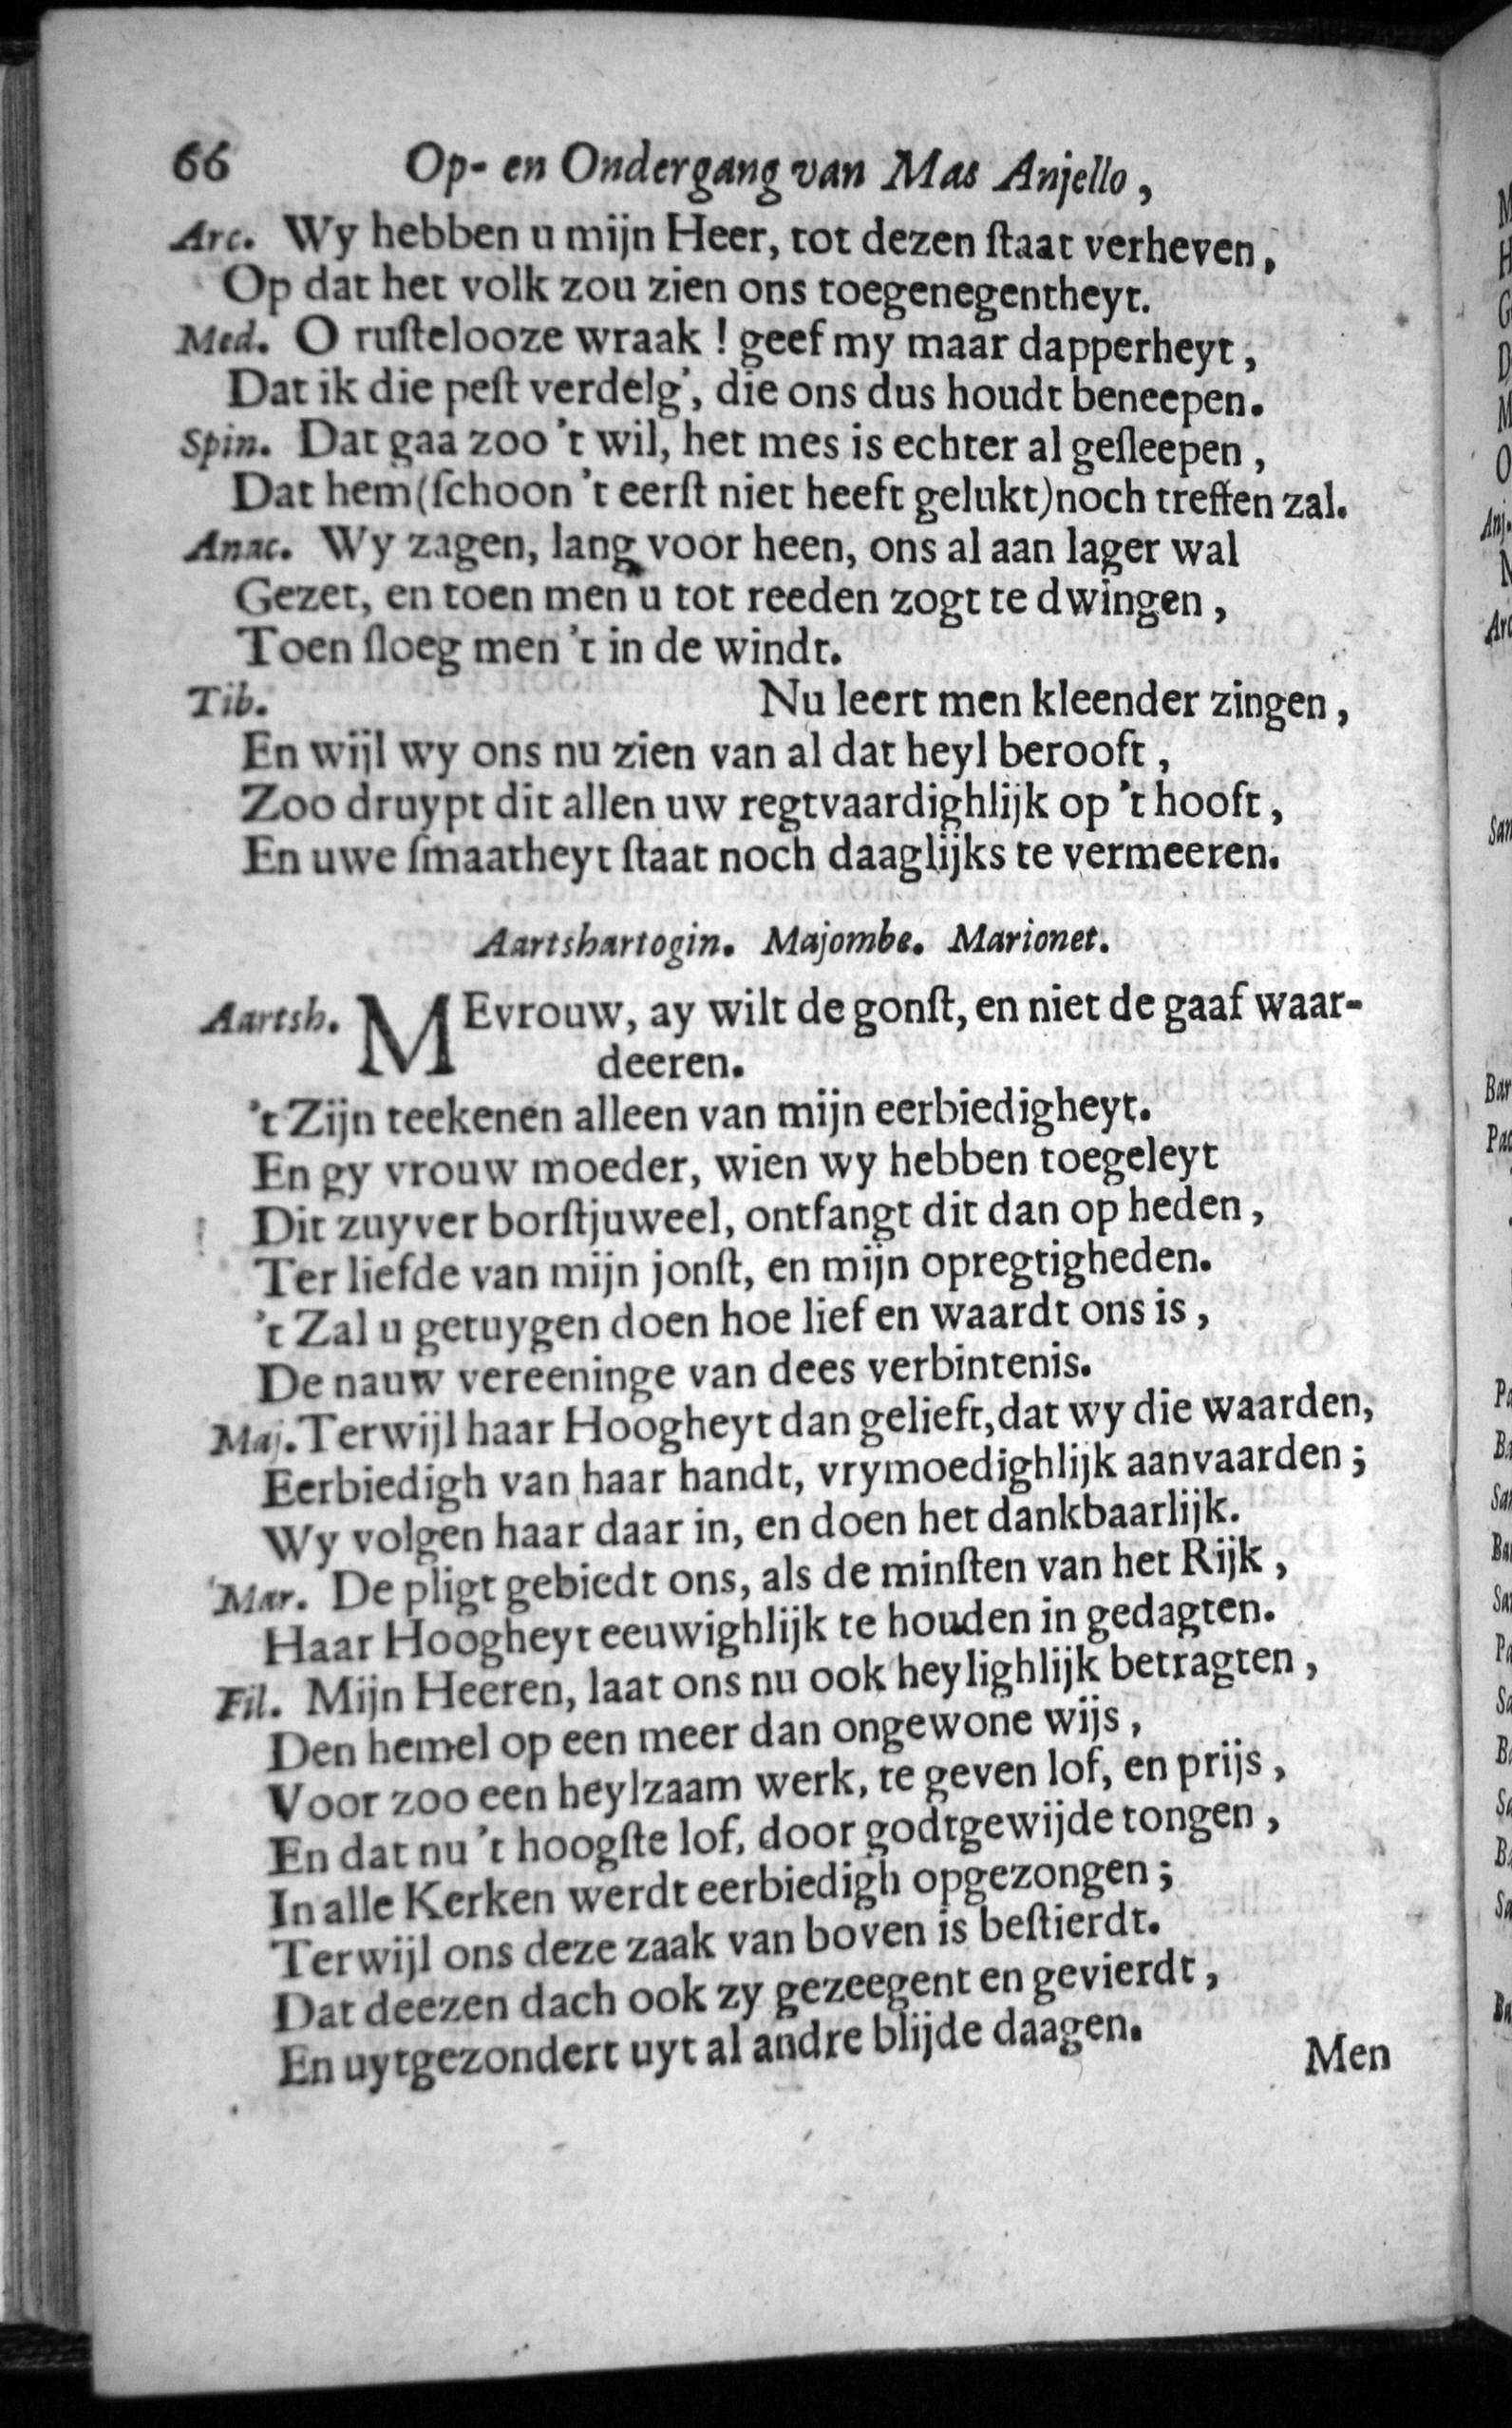 66 Op- en Ondergang van Mas Anjello,
Arc. Wy hebben u mijn Heer, tot dezen ſtaat verheven,
Op dat het volk zou zien ons toegenegentheyt.
Med. O ruſtelooze wraak! geef my maar dapperheyt,
Dat ik die peſt verdelg', die ons dus houdt beneepen.
Spin. Dat gaa zoo 't wil, het mes is echter al geſleepen,
Dat hem (ſchoon 't eerſt niet heeft gelukt) noch treffen zal.
Anac. Wy zagen, lang voor heen, ons al aan lager wal
Gezet, en toen men u tot reeden zogt te dwingen,
Toen ſloeg men 't in de windt.
Tib. Nu leert men kleender zingen,
En wijl wy ons nu zien van al dat heyl berooft,
Zoo druypt dit allen uw regtvaardighlijk op 't hooft,
En uwe ſmaatheyt ſtaat noch daaglijks te vermeeren.
Aartshartogin. Majombe. Marionet.
Aartsh. MEvrouw, ay wilt de gonſt, en niet de gaaf waar-
deeren.
't Zijn teekenen alleen van mijn eerbiedigheyt.
En gy vrouw moeder, wien wy hebben toegeleyt
Dit zuyver borſtjuweel, ontfangt dit dan op heden,
Ter liefde van mijn jonſt, en mijn opregtigheden.
't Zal u getuygen doen hoe lief en waardt ons is,
De nauw vereeninge van dees verbintenis.
Maj. Terwijl haar Hoogheyt dan gelieft, dat wy die waarden,
Eerbiedigh van haar handt, vrymoedighlijk aanvaarden;
Wy volgen haar daar in, en doen het dankbaarlijk.
Mar. De pligt gebiedt ons, als de minſten van het Rijk,
Haar Hoogheyt eeuwighlijk te houden in gedagten.
Fil. Mijn Heeren, laat ons nu ook heylighlijk betragten,
Den hemel op een meer dan ongewone wijs,
Voor zoo een heylzaam werk, te geven lof, en prijs,
En dat nu 't hoogſte lof, door godtgewijde tongen,
In alle Kerken werdt eerbiedigh opgezongen;
Terwijl ons deze zaak van boven is beſtierdt.
Dat deezen dach ook zy gezeegent en gevierdt,
En uytgezondert uyt al andre blijde daagen.
Men